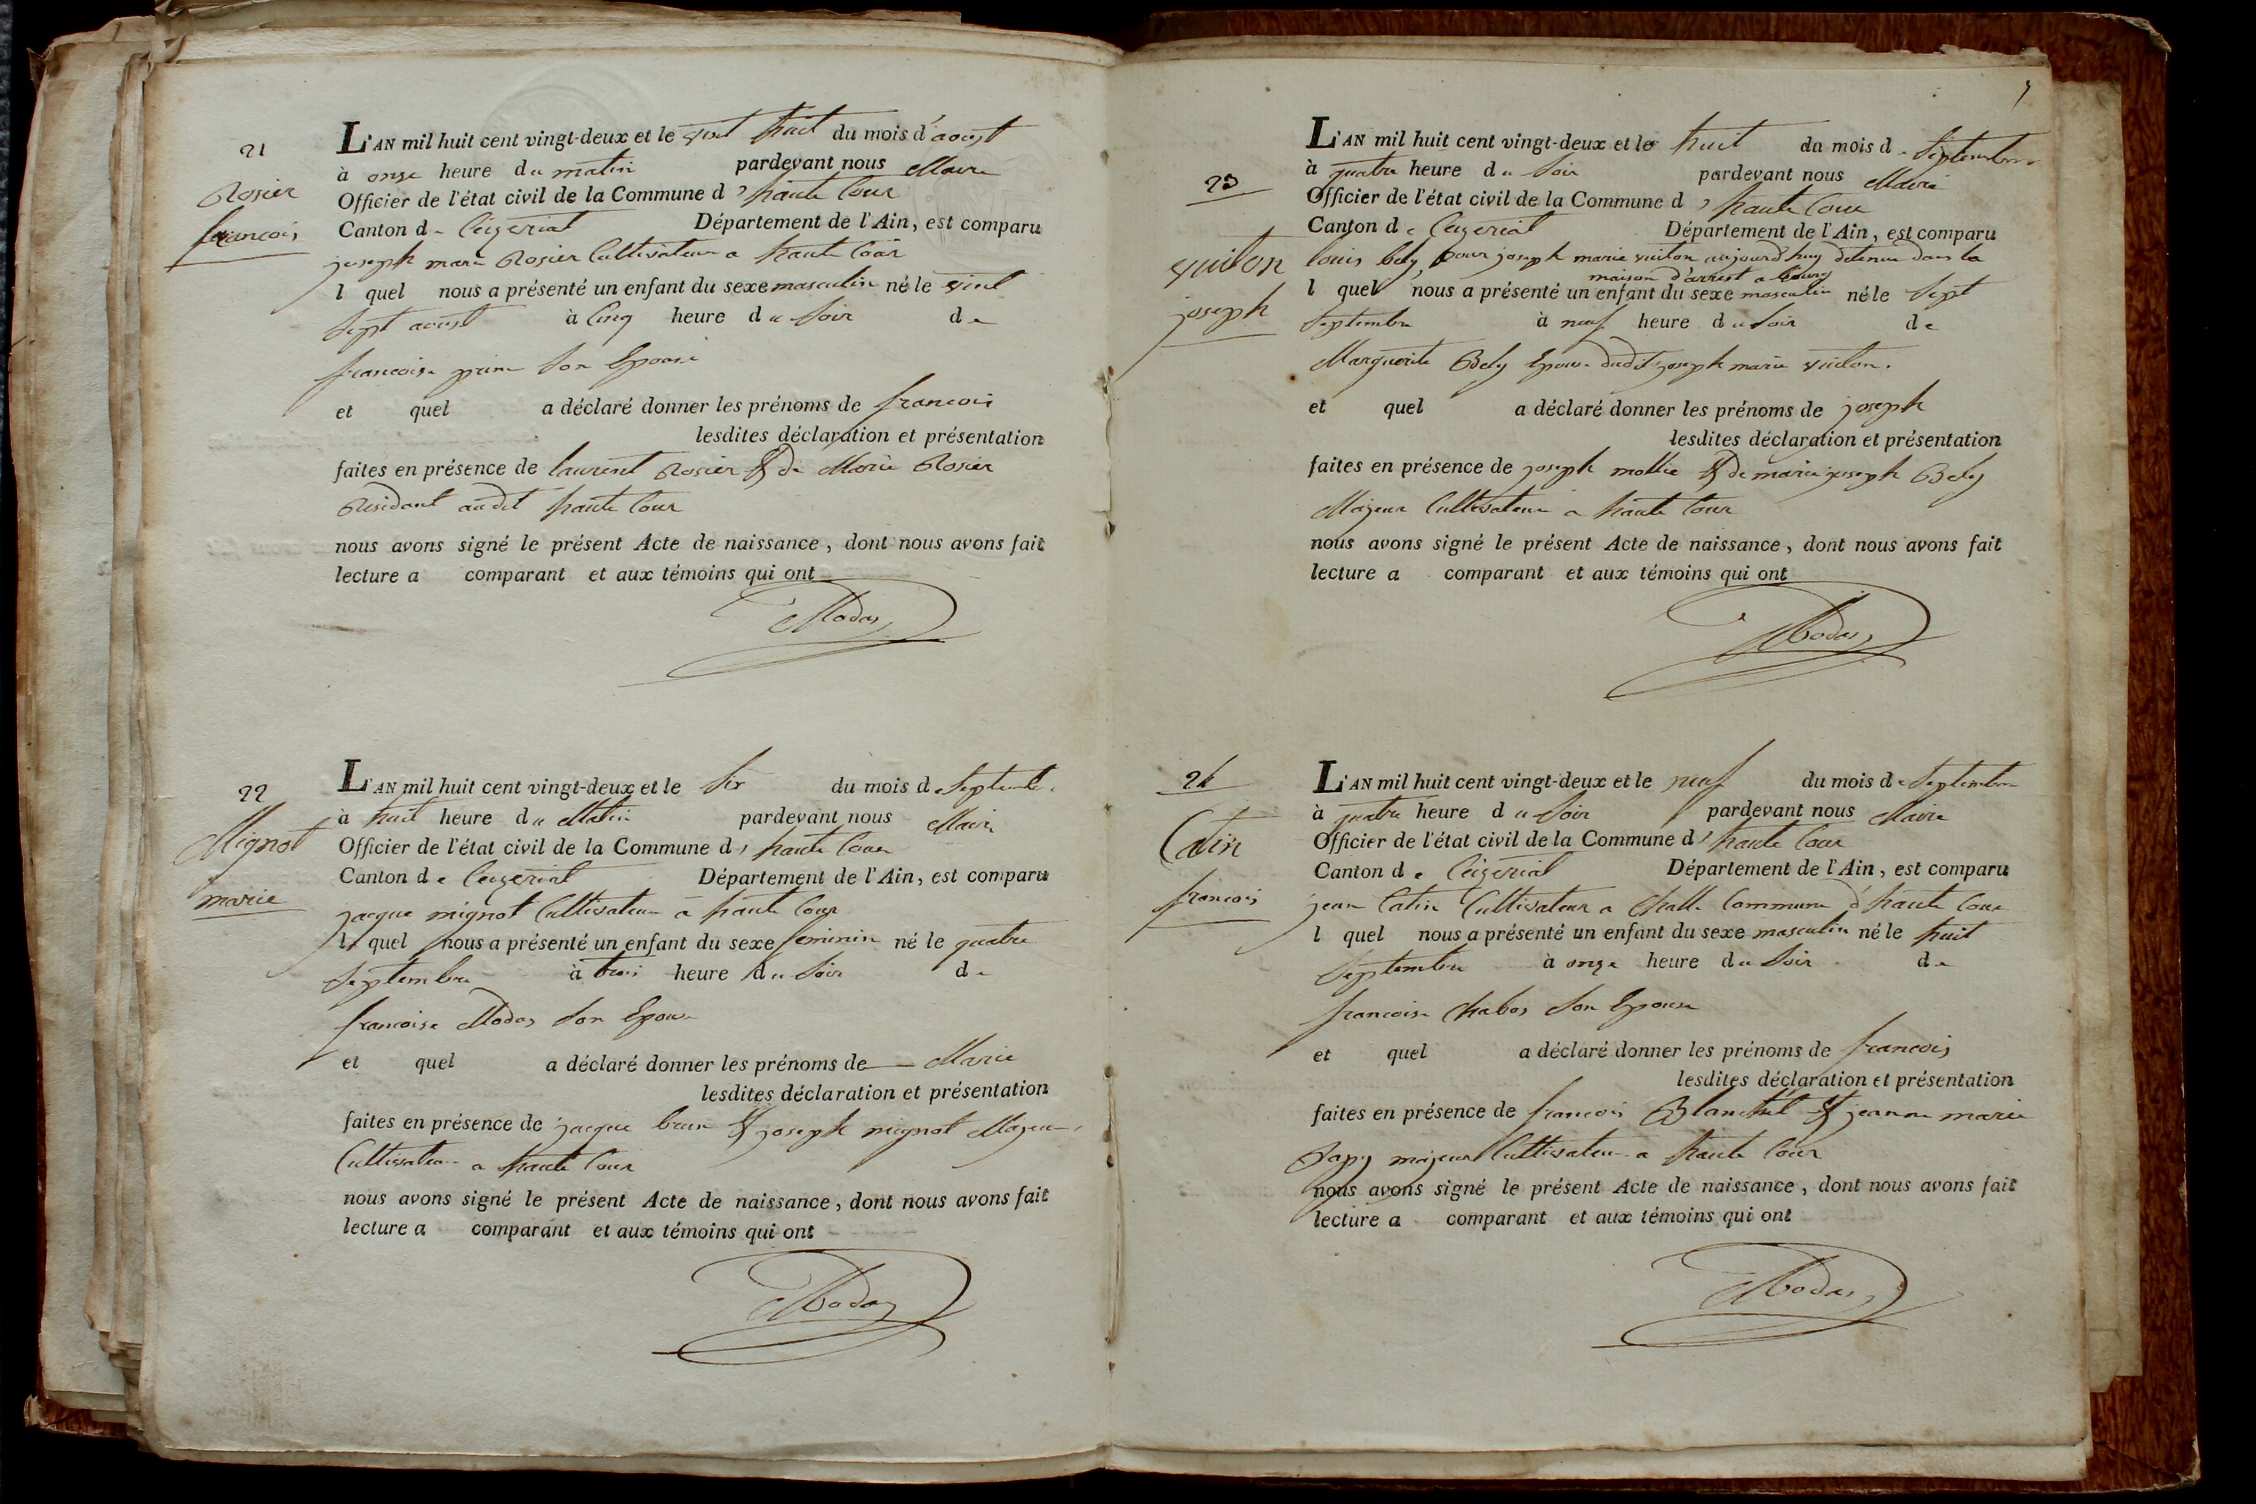 21
Rosier
francois
L'AN mil huit cent vingt-deux et le vint huit du mois d'aoust
à onze heure du matin pardevant nous Maire
Officier de l'état civil de la Commune d'haute Cour
Canton de Ceizeriat Département de l'Ain, est comparu
joseph marie Rosier Cultivateur a haute Cour
l quel nous a présenté un enfant du sexe masculin né le vint
Sept aoust à Cinq heure du Soir de
francoise Son Epouse
et quel a déclaré donner les prénoms de francois
lesdites déclaration et présentation
faites en présence de laurent Rosier & de Marie Rosier
Residant audit haute Cour
nous avons signé le présent Acte de naissance, dont nous avons fait
lecture a comparant et aux témoins qui ont
Modas
22
Mignot
marie
L'AN mil huit cent vingt-deux et le Six du mois de Septembre
à huit heure du Matin pardevant nous Maire
Officier de l'état civil de la Commune d'haute Cour
Canton de Ceizeriat Département de l'Ain, est comparu
jacque mignot Cultivateur a haute Cour
le quel nous a présenté un enfant du sexe feminin né le quatre
Septembre à trois heure du Soir de
francoise Modas Son Epouse
et quel a déclaré donner les prénoms de Marie
lesdites déclaration et présentation
faites en présence de jacque brun & joseph mignot Majeur
Cultivateur a haute Cour
nous avons signé le présent Acte de naissance, dont nous avons fait
lecture a comparant et aux témoins qui ont
Modas
23
vuiton
joseph
L'AN mil huit cent vingt-deux et le huit du mois de Septembre
à quatre heure du Soir pardevant nous Maire
Officier de l'état civil de la Commune d'haute Cour
Canton de Ceizeriat Département de l'Ain, est comparu
louis bely pour joseph marie vuiton aujourd'huy detenu dans la
maison d'arrest a bourg
l quel nous a présenté un enfant du sexe masculin né le Sept
Septembre à neuf heure du Soir de
Marguerite Bely Epouse dudit joseph marie vuiton.
et quel a déclaré donner les prénoms de joseph
lesdites déclaration et présentation
faites en présence de joseph & de marie joseph Bely
Majeur Cultivateur a haute Cour
nous avons signé le présent Acte de naissance, dont nous avons fait
lecture a comparant et aux témoins qui ont
Modas
24
Catin
francois
L'AN mil huit cent vingt-deux et le neuf du mois de Septembre
à quatre heure du Soir pardevant nous Maire
Officier de l'état civil de la Commune d'haute Cour
Canton de Ceizeriat Département de l'Ain, est comparu
jean Catin Cultivateur a Challe Commune d'haute Cour
l quel nous a présenté un enfant du sexe masculin né le huit
Septembre à onze heure du Soir de
francoise Chabos Son Epouse
et quel a déclaré donner les prénoms de francois
lesdites déclaration et présentation
faites en présence de francois & jeanne marie
majeur Cultivateur a haute Cour
nous avons signé le présent Acte de naissance, dont nous avons fait
lecture a comparant et aux témoins qui ont
Modas